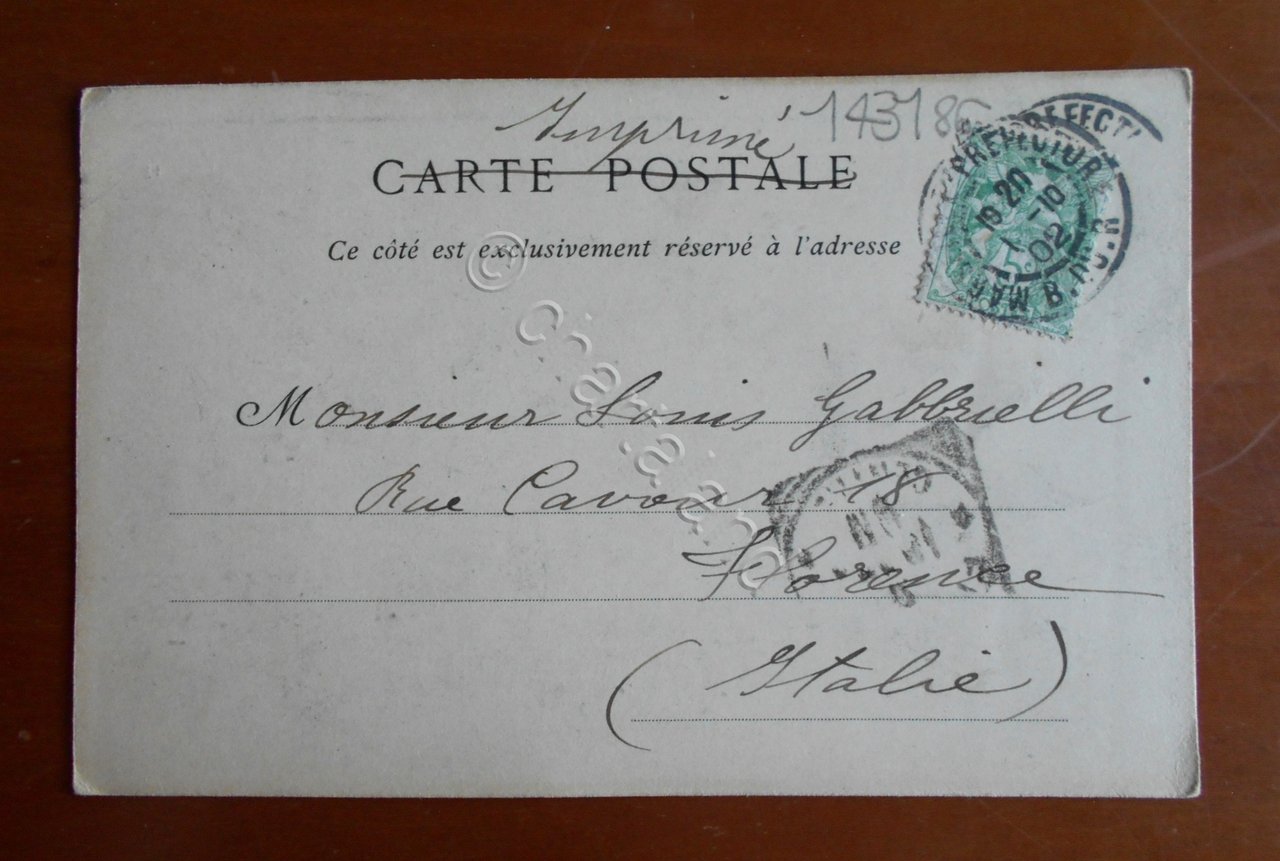 Imprimé
143186
CARTE POSTALE
Ce côté est exclusivement réservé à l'adresse
PREFECTURE
19 20
1 -10
02
B. DU R.
5
© charta.a.na
Monsieur Louis Gabbrielli
Rue Cavour 18
Florence
(Italie)